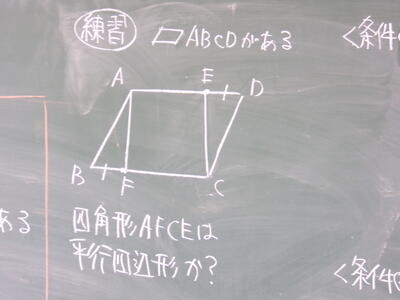 練習 ▱ABCDがある
<条件
A E D
B F C
ある
四角形AFCEは
平行四辺形か?
<条件